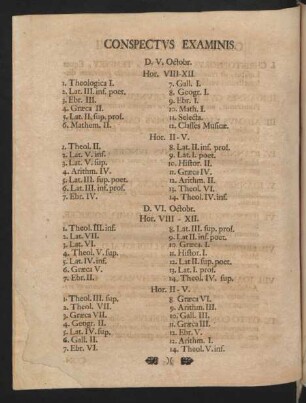 CONSPECTVS EXAMINIS.
D. V. Octobr.
Hor. VIII-XII.
1. Theologica I.
2. Lat. III. inf. poet.
3. Ebr. III.
4. Græca II.
5. Lat. II. sup. prof.
6. Mathem. II.
7. Gall. I.
8. Geogr. I.
9. Ebr. I.
10. Math. I.
11. Selecta.
12. Classes Musicæ.
Hor. II-V.
1. Theol. II.
2. Lat. V. inf.
3. Lat. V. sup.
4. Arithm. IV.
5. Lat. III. sup. poet.
6. Lat. III. inf. prof.
7. Ebr. IV.
8. Lat. II. inf. prof.
9. Lat. I. poet.
10. Histor. II.
11. Græca IV.
12. Arithm. II.
13. Theol. VI.
14. Theol. IV. inf.
D. VI. Octobr.
Hor. VIII - XII.
1. Theol. III. inf.
2. Lat. VII.
3. Lat. VI.
4. Theol. V. sup.
5. Lat. IV. inf.
6. Græca V.
7. Ebr. II.
8. Lat. III. sup. prof.
9. Lat II. inf. poet.
10. Græca I.
11. Histor. I.
12. Lat II. sup. poet.
13. Lat. I. prof.
14. Theol. IV. sup.
Hor. II-V.
1. Theol. III. sup.
2. Theol. VII.
3. Græca VII.
4. Geogr. II.
5. Lat. IV. sup.
6. Gall. II.
7. Ebr. VI.
8 Græca VI.
9. Arithm. III.
10. Gall. III.
11. Græca III.
12. Ebr. V.
13. Arithm. I.
14. Theol. V. inf.